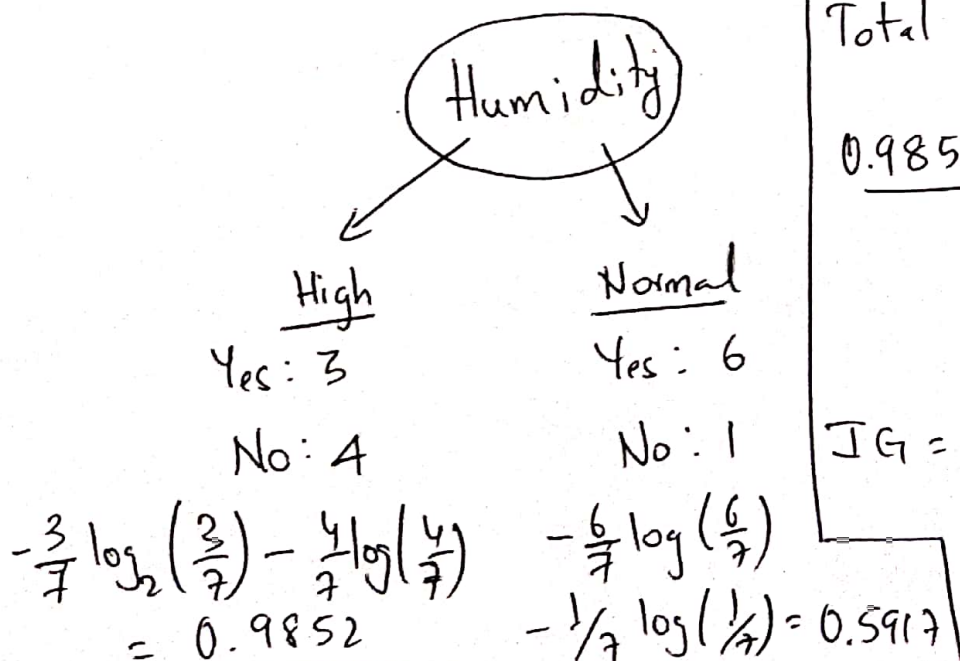 Humidity
High
Yes: 3
No: 4
-3/7 log₂(3/7) - 4/7 log(4/7)
= 0.9852
Normal
Yes: 6
No: 1
-6/7 log(6/7)
-1/7 log(1/7) = 0.5917
Total
0.985
IG =